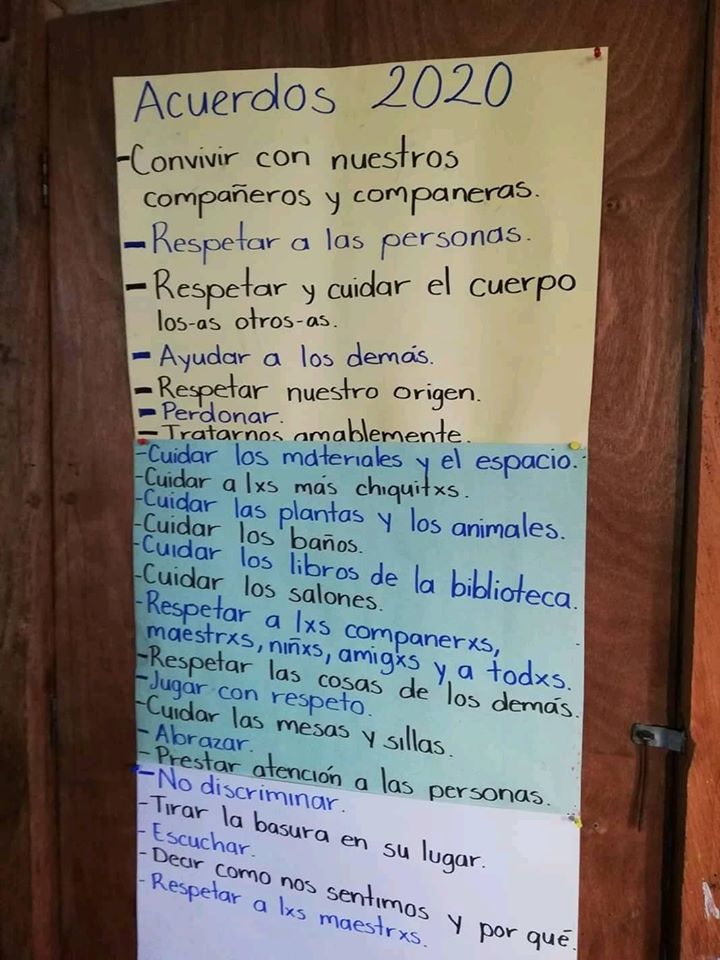 Acuerdos 2020
-Convivir con nuestros
compañeros y companeras.
-Respetar a las personas.
-Respetar y cuidar el cuerpo
los-as otros-as.
-Ayudar a los demás.
-Respetar nuestro origen.
-Perdonar.
-Tratarnos amablemente.
-Cuidar los materiales y el espacio.
-Cuidar a lxs más chiquitxs.
-Cuidar las plantas y los animales.
-Cuidar los baños.
-Cuidar los libros de la biblioteca.
-Cuidar los salones.
-Respetar a lxs companerxs,
maestrxs, niñxs, amigxs y a todxs.
-Respetar las cosas de los demás.
-Jugar con respeto.
-Cuidar las mesas y sillas.
-Abrazar.
-Prestar atención a las personas.
-No discriminar.
-Tirar la basura en su lugar.
-Escuchar.
-Decir como nos sentimos y por qué.
-Respetar a lxs maestrxs.